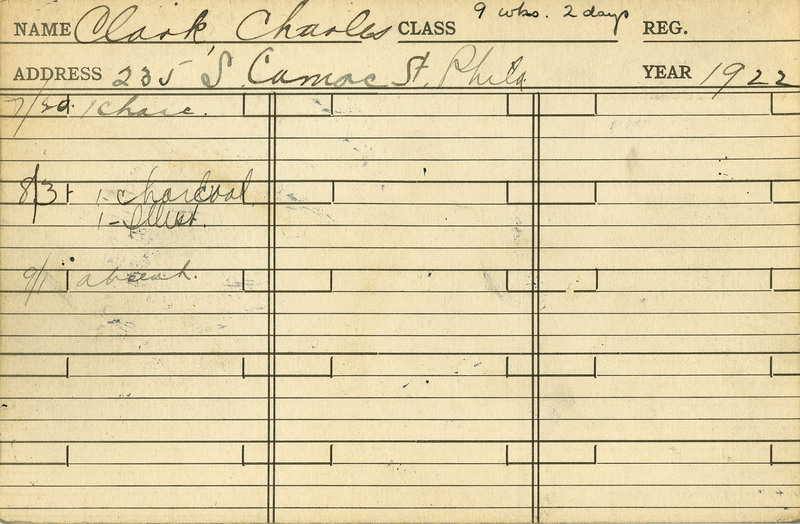 9 wks. 2 days
NAME Clark, Charles CLASS REG.
ADDRESS 235 S. Camac St. Phila YEAR 1922
7/20. 1 charc.
8/3 1- charcoal
1-
9/1 absent.